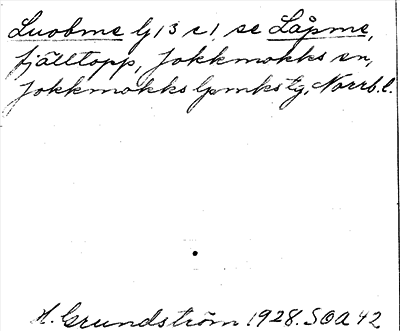 Luobme lj 13 c 1, se Låpme,
fjälltopp, Jokkmokks sn,
Jokkmokks lpmkstg, Norrb. l.
H. Grundström 1928. SOA 42